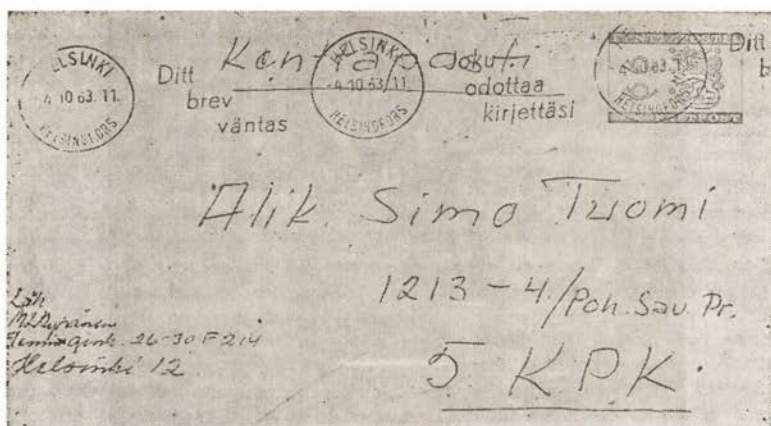 HELSINKI
-4.10.63.11.
HELSINGFORS
Ditt
brev
väntas
HELSINKI
-4.10.63.11
HELSINGFORS
odottaa
kirjettäsi
Ditt
-4.10.63.
HELSINGFORS
b
Alik. Simo Tuomi
1213-4/Poh. Sav. Pr.
5 KPK
Läh
26-30 F 214
Helsinki 12